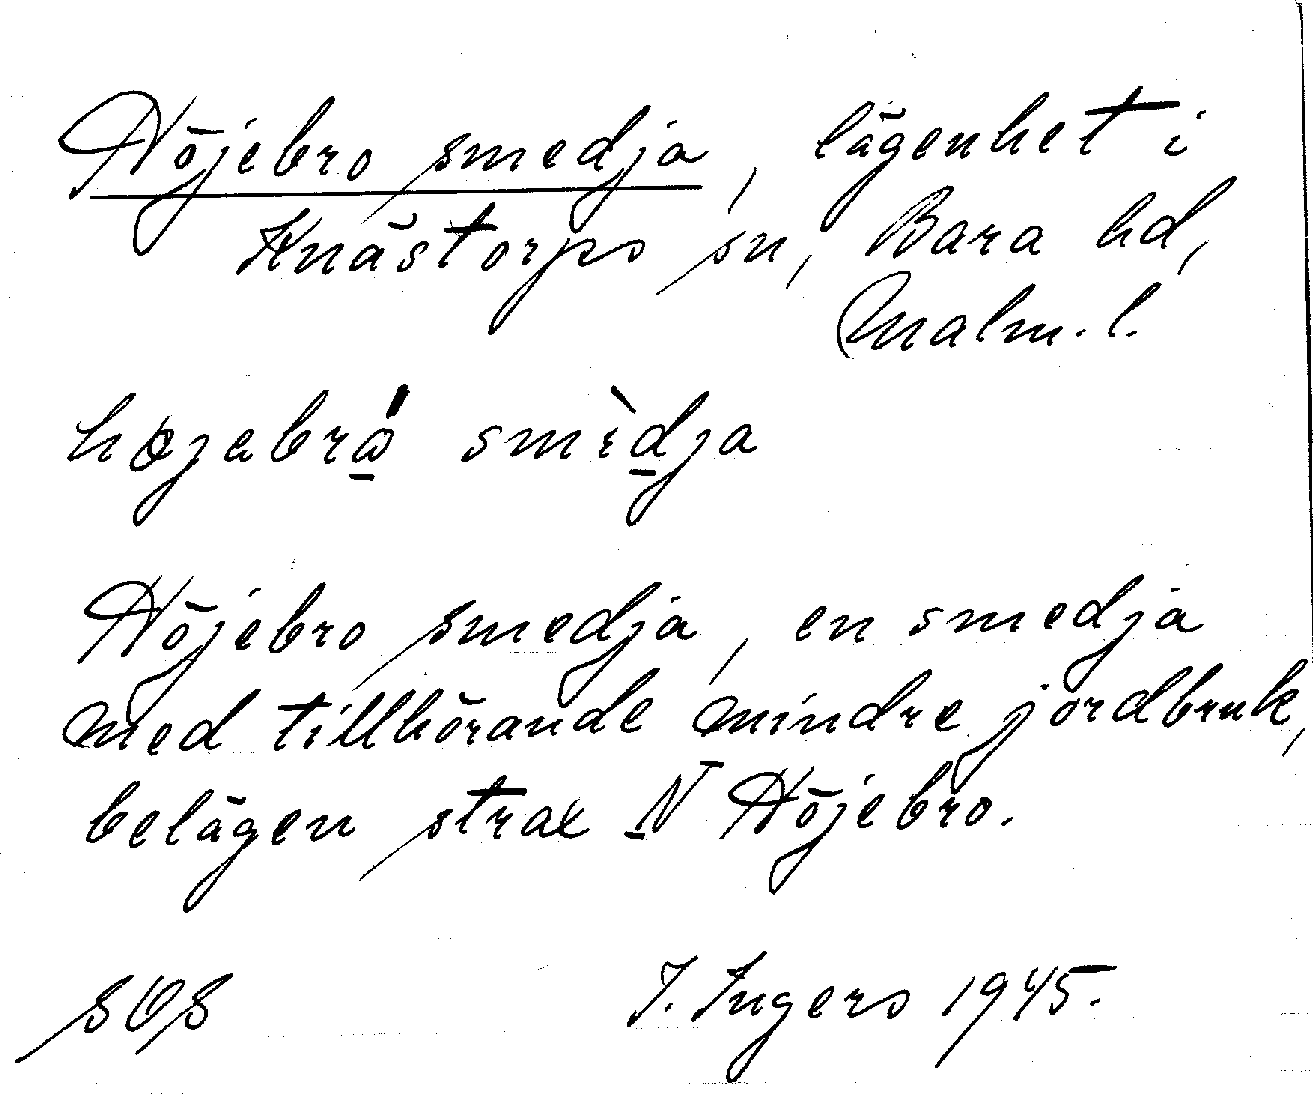 Höjebro smedja, lägenhet i
Knästorps sn, Bara hd,
Malm. l.
Höjebro smedja, en smedja
med tillhörande mindre jordbruk,
belägen strax N Höjebro.
I. Ingers 1945.